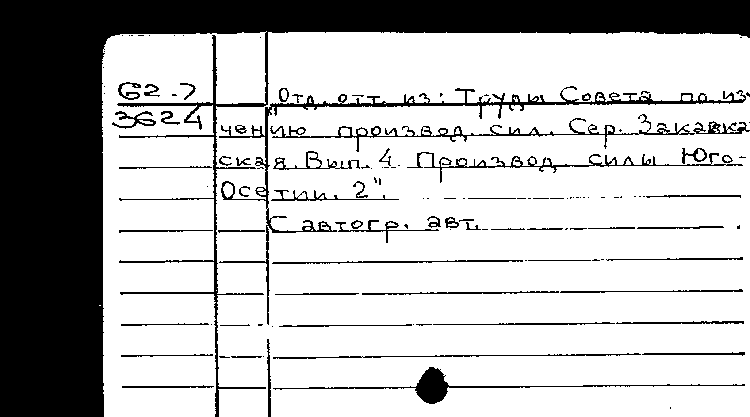 62-7
3624
Отд. отт. из: "Труды Совета по из
чению производ. сил. Сер. Закавка
ская. Вып. 4 Производ. силы Юго-
Осетии. 2".
С автогр. авт.